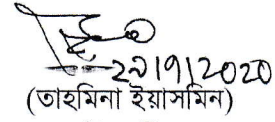 ২৯/৭/2020
(তাহমিনা ইয়াসমিন)